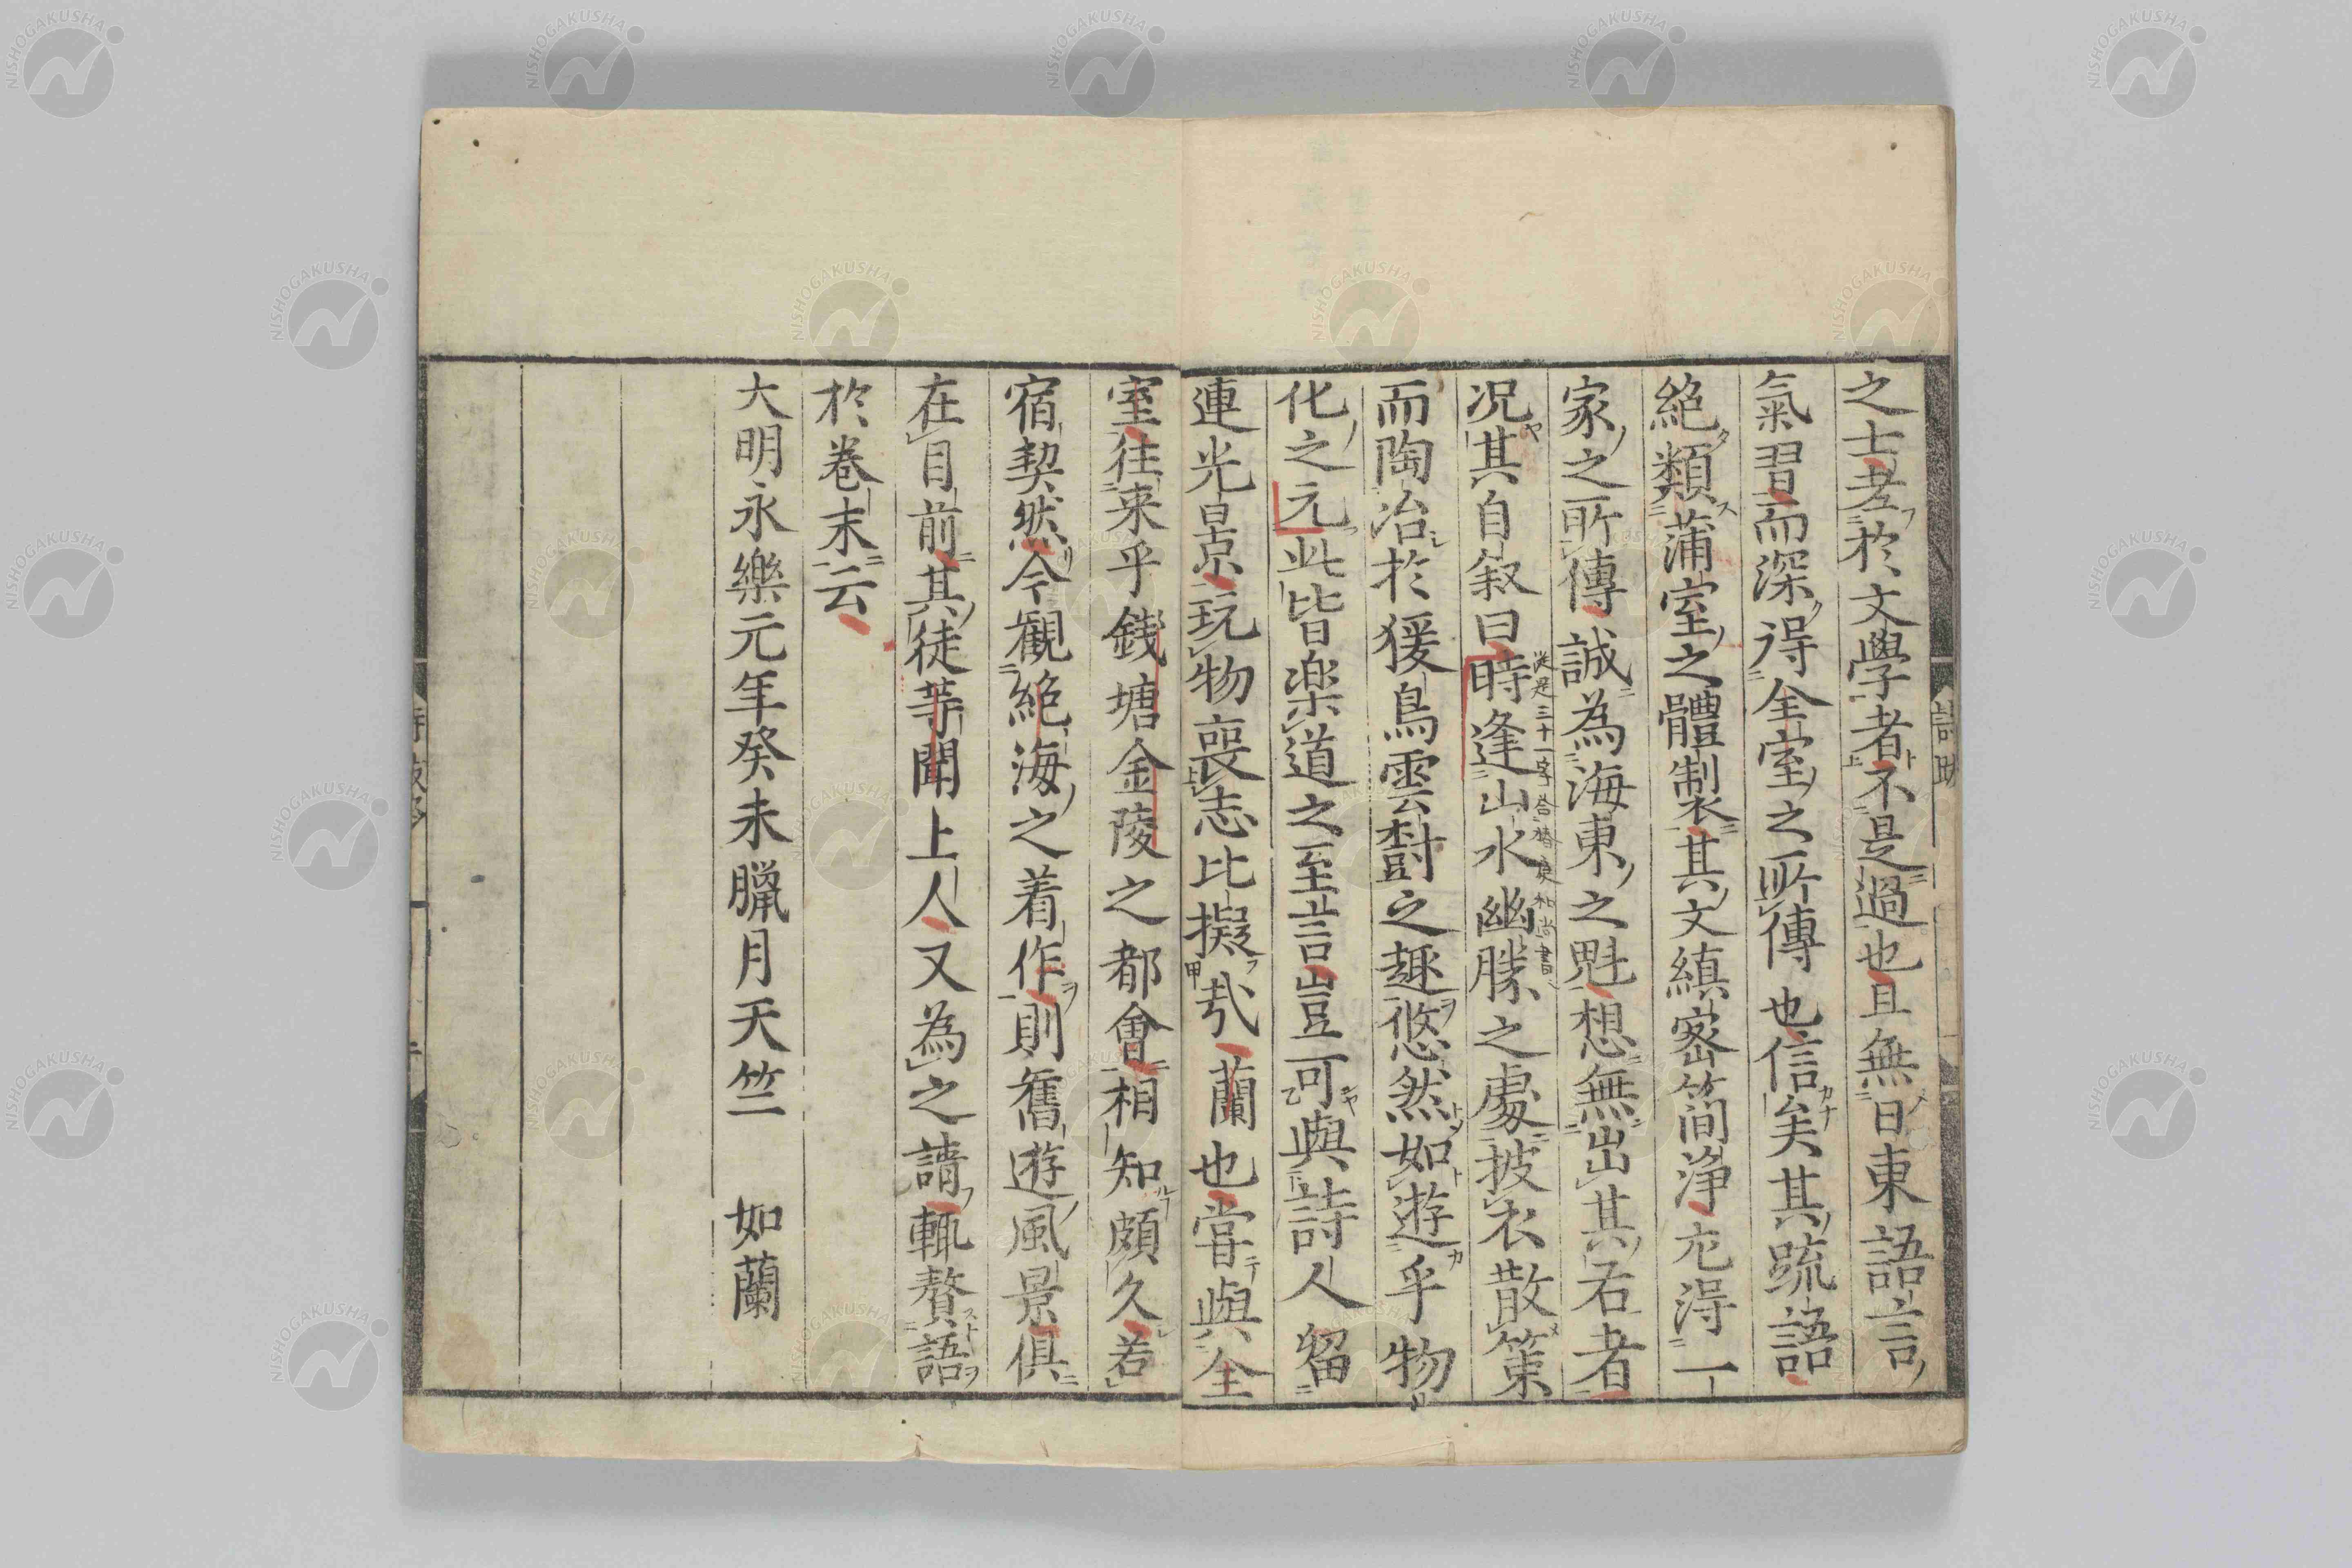 之士老於文學者不是過也且無日東語言
氣習而深得全室之所傳也信矣其疏語
絶類蒲室之體製其文縝密簡淨尤得一
家之所傳誠為海東之魁想無出其右者
況其自叙曰時逢山水幽勝之處披衣散策
從是三十一字答椿庭和尚書
而陶冶於猨鳥雲樹之趣悠然如遊乎物
化之元此皆楽道之至言豈可與詩人留
連光景玩物喪志比擬哉蘭也嘗與全
室往来乎錢塘金陵之都會相知頗久若
宿契然今觀絶海之着作則舊遊風景俱
在目前其徒等聞上人又為之請輒贅語
於卷末云
大明永樂元年癸未臘月天竺　如蘭